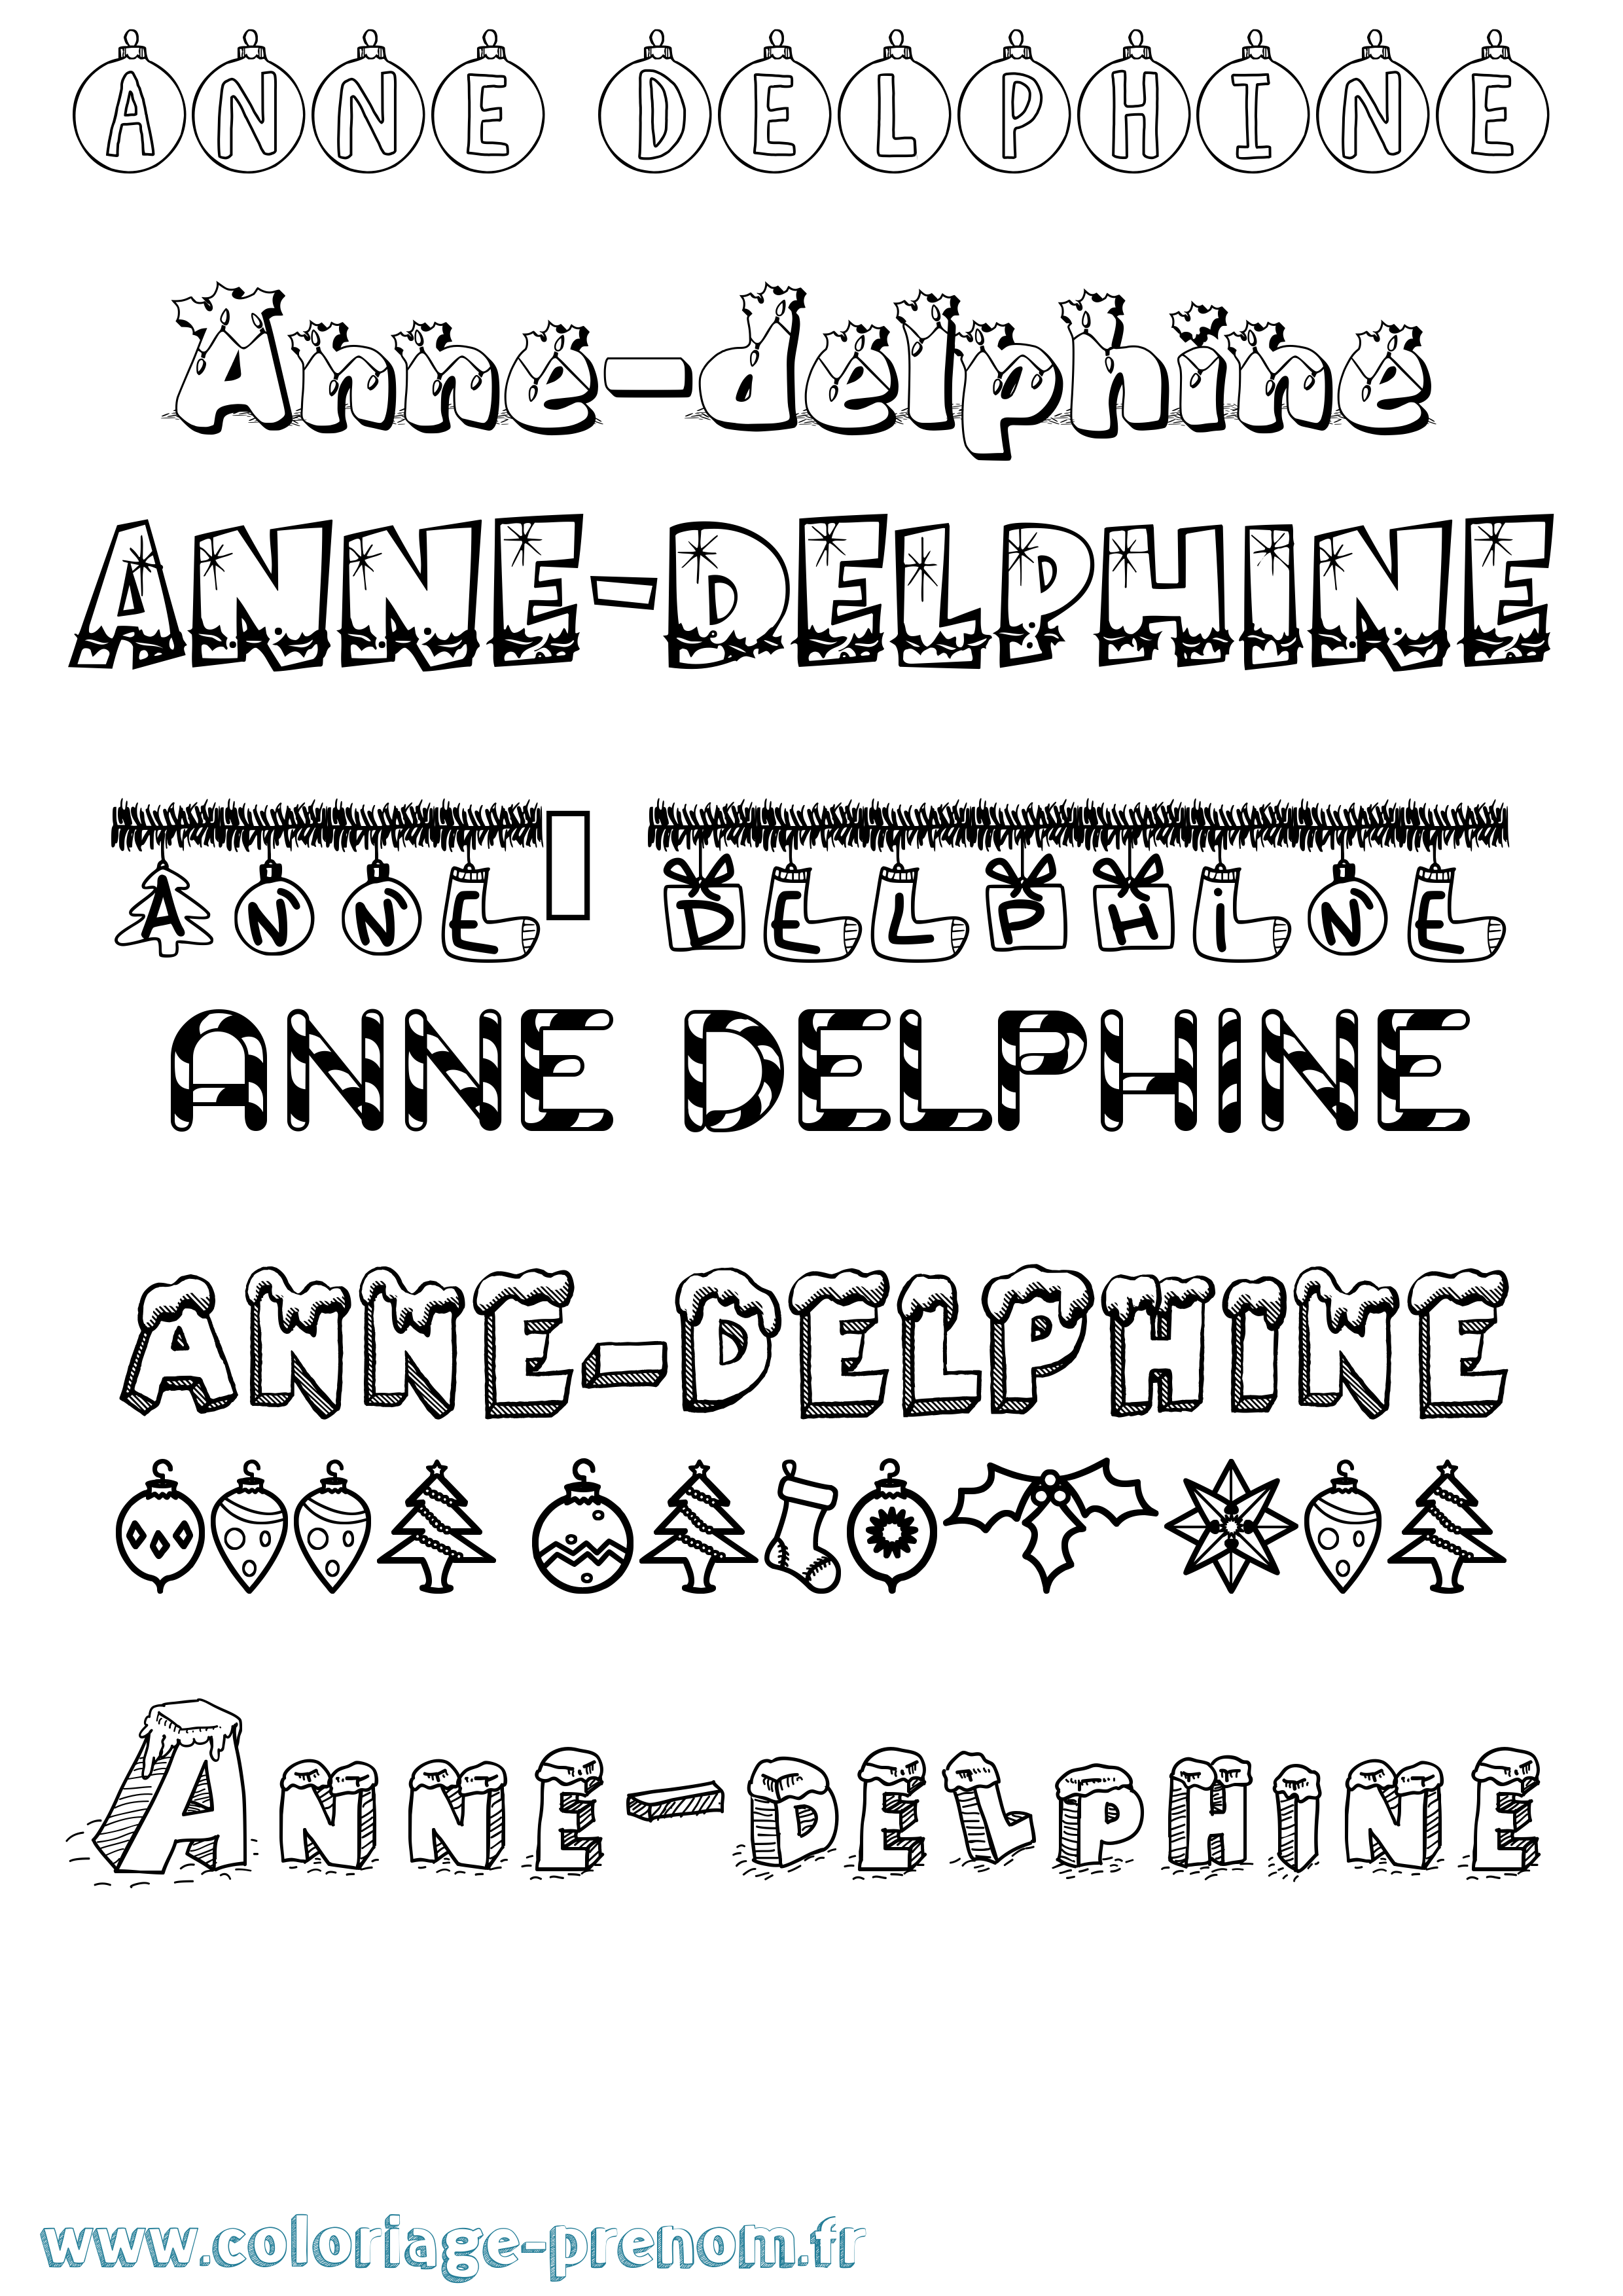 ANNE DELPHINE
Anne-delphine
ANNE-DELPHINE
ANNE DELPHiNE
ANNE DELPHINE
ANNE-DELPHINE
ANNE-DELPHINE
www.coloriage-prenom.fr